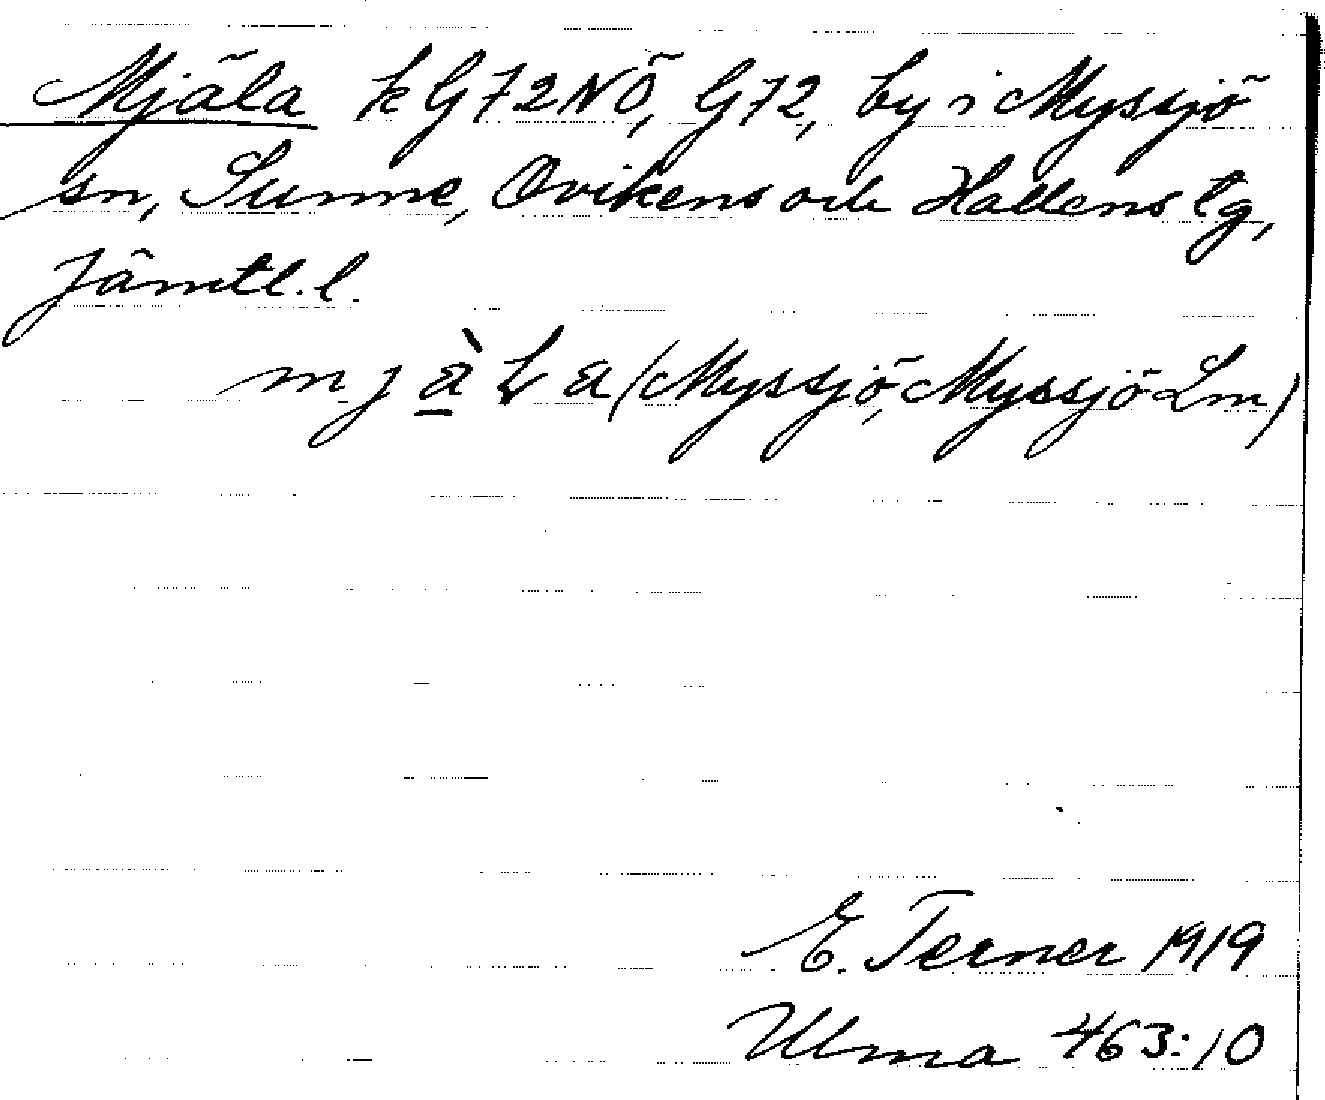 Mjäla k G72NÖ, G72, by i Myssjö
sn, Sunne, Ovikens och Hallens tg,
Jämtl. l.
m j à̱ L a (Myssjö, Myssjö Lm)
E. Terner 1919
Ulma 463:10